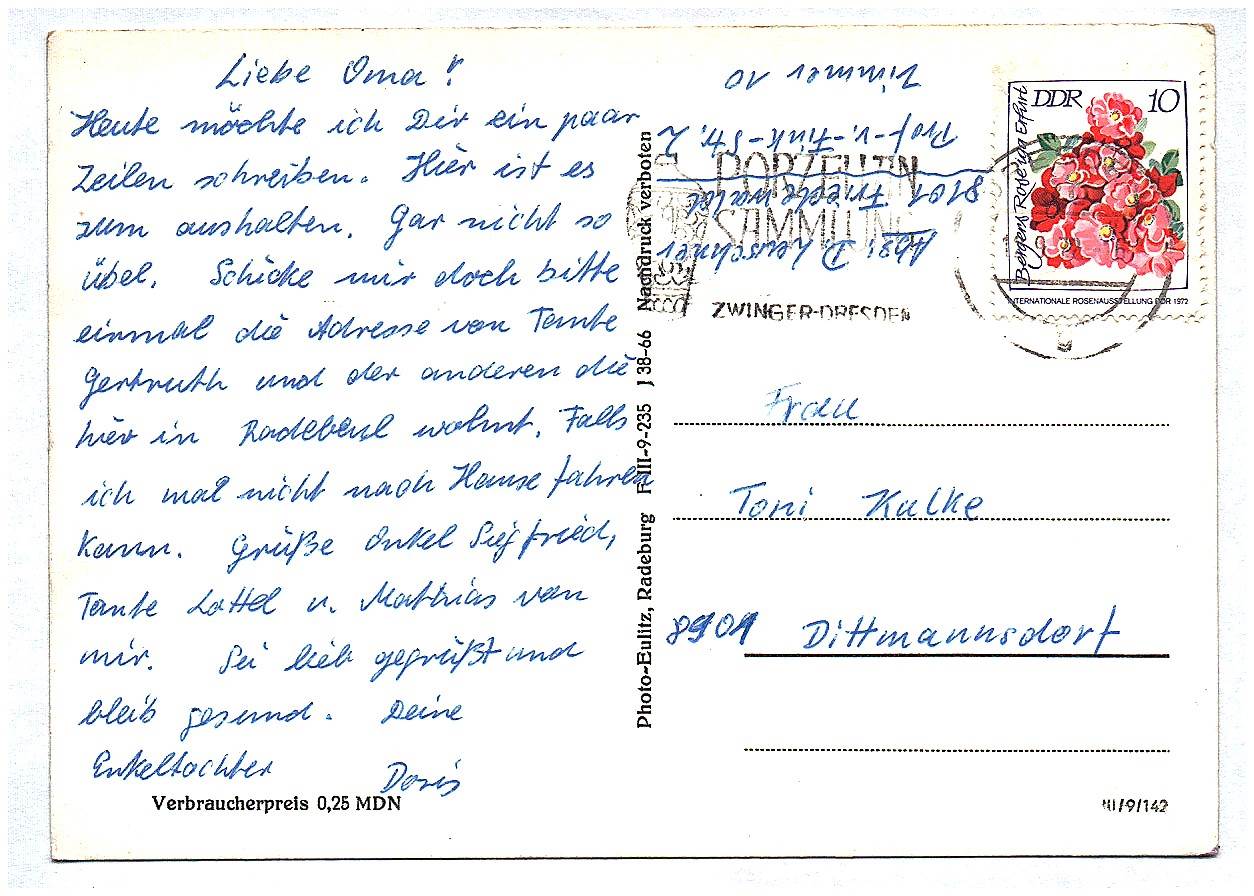 Liebe Oma!
Heute möchte ich Dir ein paar
Zeilen schreiben. Hier ist es
zum aushalten. Gar nicht so
übel. Schicke mir doch bitte
einmal die Adresse von Tante
Gertruth und der anderen die
hier in Radebeul wohnt. Falls
ich mal nicht nach Hause fahren
kann. Grüße Onkel Siegfried,
Tante Lottel u. Matthias von
mir. Sei lieb gegrüßt und
bleib gesund. Deine
Enkeltochter Doris
Verbraucherpreis 0,25 MDN
Photo-Eulitz, Radeburg F III-9-235 J 38-66 Nachdruck verboten
Abs: D. Leuschner
8101 Friedewald
Prof-v-Fink-Str. 2
Zimmer 10
PORZELLAN
SAMMLUNG
ZWINGER-DRESDEN
DDR 10
Bergers Rose aus Erfurt
INTERNATIONALE ROSENAUSSTELLUNG DDR 1972
Frau
Toni Kulke
8901 Dittmannsdorf
III/9/142